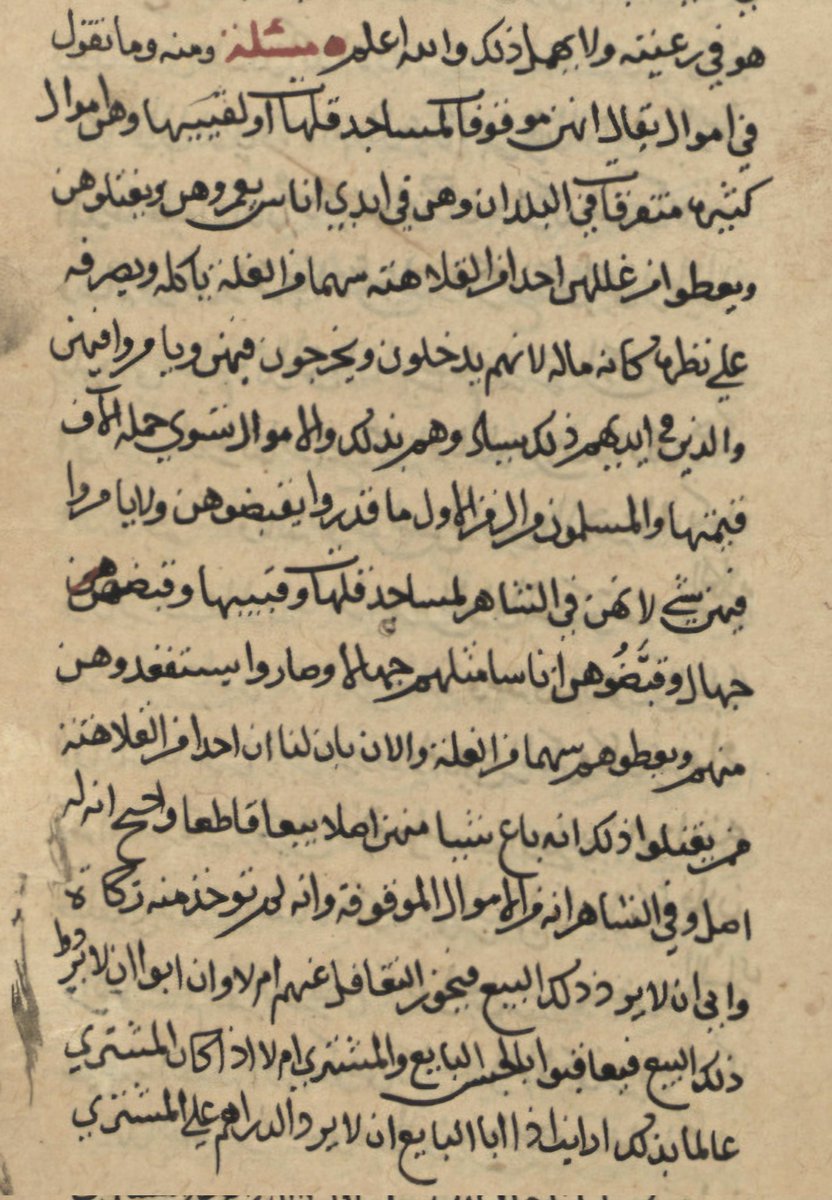 هو في رعيته ولا يهمل ذلك والله اعلم ه مسئلة ومنه وما تقول
في اموال يقال انهن موقوفات لمساجد قلهات اولقبيبها وهن اموال
كثيره متفرقات في البلدان وهن في ايدي اناس يعمروهن ويغتلوهن
ويعطوا من غللهن احدا من القلاهته سهما من الغلة ياكله ويصرفه
علي نظره كانه ماله لانهم يدخلون ويخرجون فيهن ويامروا فيهن
والذين في ايديهم ذلك وهم بذلك والاموال تسوي جملة الاف
قيمتها والمسلمون من الزمن الاول ما قدروا يقبضوهن ولا يامروا
فيهن بشي لانهن في التشاهر لمساجد قلهات وقبيبها وقبضوهن
جهال وقبَّضُوهن اناسا مثلهم جهالا وصاروا يستقعدوهن
منهم ويعطوهم سهما من الغلة والان بان لنا ان احدا من القلاهتة
من يغتلوا ذلك انه باع شيا منهن اصلا بيعا قاطعا واحتج انه له
اصل وفي التشاهر انه من الاموال الموقوفة وانه لم توخذ منه زكاة
وابي ان لا يرد ذلك البيع فيجوز التغافل عنهم ام لا وان ابوا ان لا يردوا
ذلك البيع فيعاقبوا بالحبس البايع والمشتري ام لا اذا كان المشتري
عالما بذلك ارايت اذا ابا البايع ان لا يرد الدراهم علي المشتري